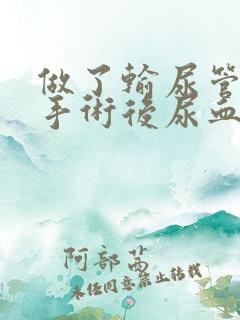 做了輸尿管
手術後尿血
阿部茜
未经同意禁止转载